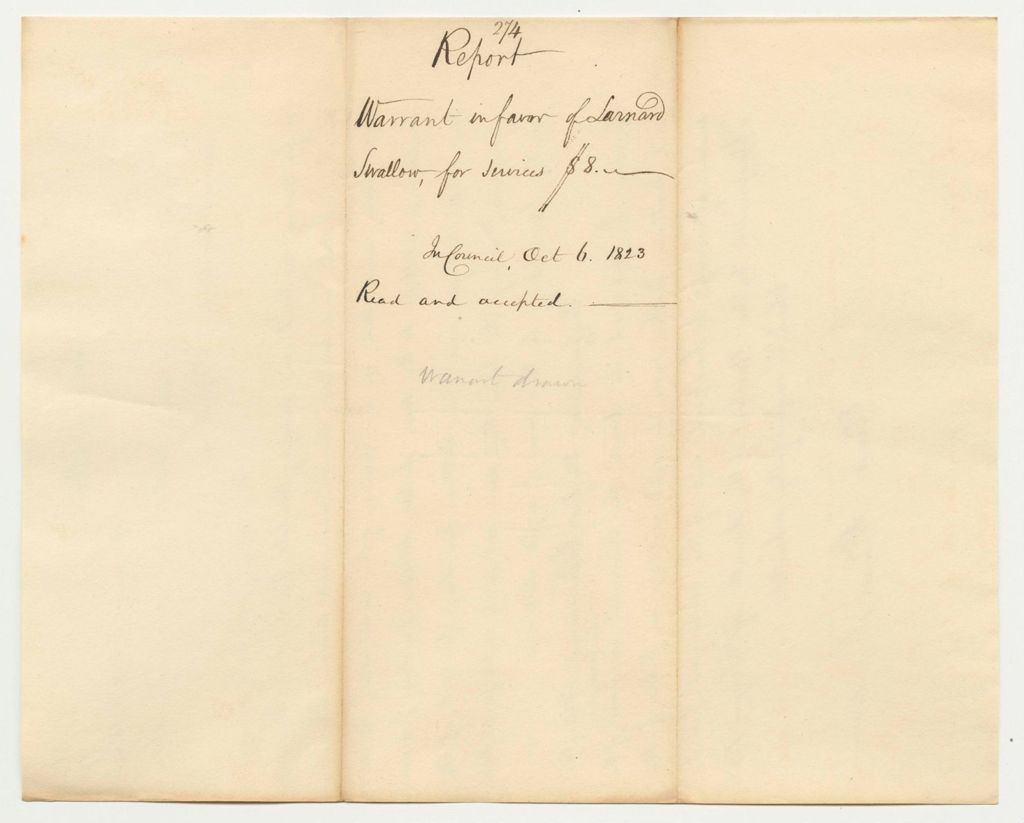 274
Report
Warrant in favor of Larnard
Swallow, for services $8.
In Council, Oct 6. 1823
Read and accepted.
Warrant drawn